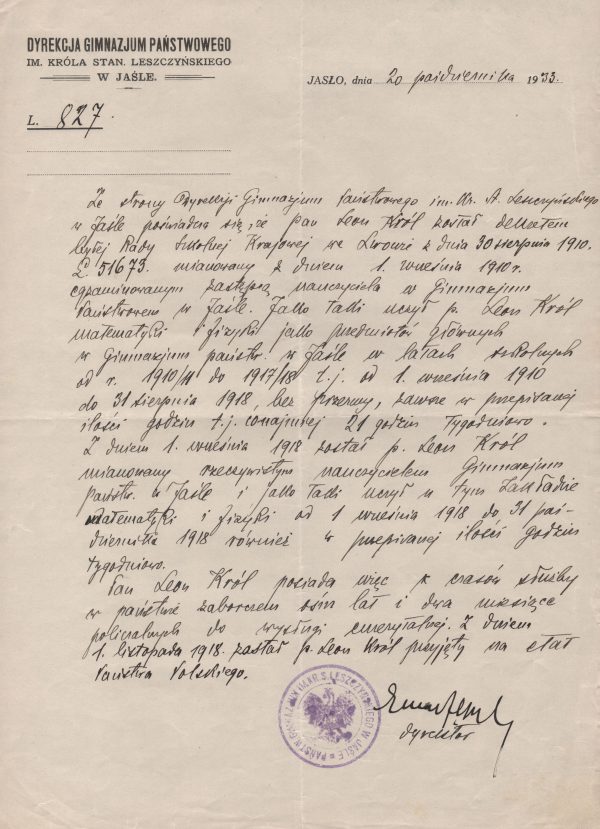 DYREKCJA GIMNAZJUM PAŃSTWOWEGO
IM. KRÓLA STAN. LESZCZYŃSKIEGO
W JAŚLE.
JASŁO, dnia 20 października 1933.
L. 827.
Ze strony Dyrekcji Gimnazjum Państwowego im. Kr. St. Leszczyńskiego
w Jaśle poświadcza się, że Pan Leon Król został dekretem
byłej Rady Szkolnej Krajowej we Lwowie z dnia 30 sierpnia 1910.
L. 51673. mianowany z dniem 1. września 1910 r.
egzaminowanym zastępcą nauczyciela w Gimnazjum
Państwowem w Jaśle. Jako taki uczył p. Leon Król
matematyki i fizyki jako przedmiotów głównych
w Gimnazjum państw. w Jaśle w latach szkolnych
od r. 1910/11 do 1917/18 t.j. od 1. września 1910
do 31 sierpnia 1918, bez przerwy, zawsze w przepisanej
ilości godzin t.j. conajmniej 21 godzin tygodniowo.
Z dniem 1. września 1918 został p. Leon Król
mianowany rzeczywistym nauczycielem Gimnazjum
państw. w Jaśle i jako taki uczył w tym Zakładzie
matematyki i fizyki od 1 września 1918 do 31 paź-
dziernika 1918 również w przepisanej ilości godzin
tygodniowo.
Pan Leon Król posiada więc z czasów służby
w państwie zaborczem ośm lat i dwa miesiące
policzalnych do wysługi emerytalnej. Z dniem
1. listopada 1918. został p. Leon Król przyjęty na etat
Państwa Polskiego.
dyrektor
PAŃSTW. GIMNAZJUM IM. KR. S. LESZCZYŃSKIEGO W JAŚLE